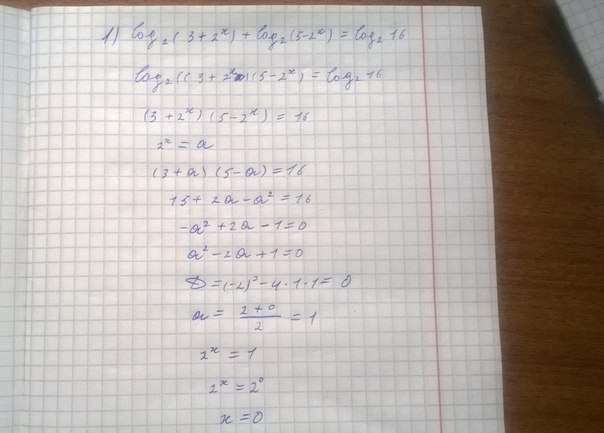 1) log₂(3+2ˣ)+log₂(5-2ˣ)=log₂16
log₂((3+2ˣ)(5-2ˣ)=log₂16
(3+2ˣ)(5-2ˣ)=16
2ˣ=a
(3+a)(5-a)=16
15+2a-a²=16
-a²+2a-1=0
a²-2a+1=0
D=(-2)²-4·1·1=0
a=(2+0)/2=1
2ˣ=1
2ˣ=2⁰
x=0